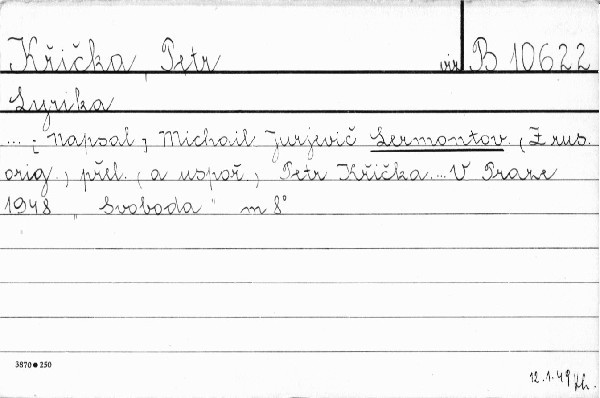 Křička Petr viz B 10622
Lyrika
... [Napsal] Michail Jurjevič Lermontov. (Z rus.
orig.) přel. (a uspoř.) Petr Křička ... V Praze
1948 "Svoboda" m 8°
3870 ● 250
12.1.49